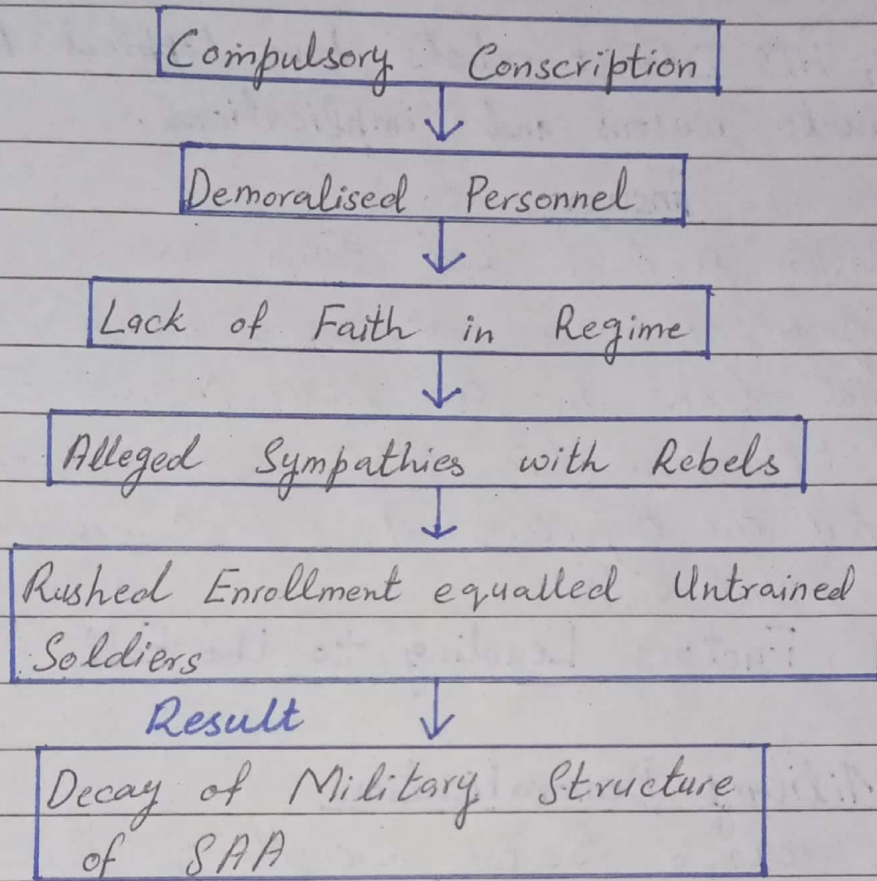 Compulsory Conscription
Demoralised Personnel
Lack of Faith in Regime
Alleged Sympathies with Rebels
Rushed Enrollment equalled Untrained
Soldiers
Result
Decay of Military Structure
of SAA